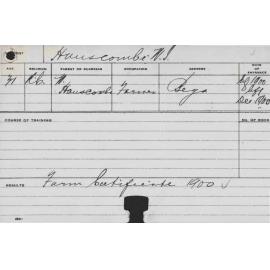 Hanscombe W. J.
AGE RELIGION PARENT OR GUARDIAN OCCUPATION ADDRESS DATE OF ENTRANCE
W. Hanscombe Farmer Bega
Left Dec 1900
COURSE OF TRAINING
RESULTS Farm Certificate 1900